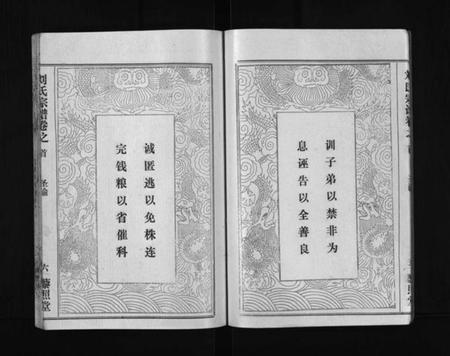 训子弟以禁非为
息诬告以全善良
诚匿逃以免株连
完钱粮以省催科
刘氏宗谱卷之首
圣谕
六
藜照堂